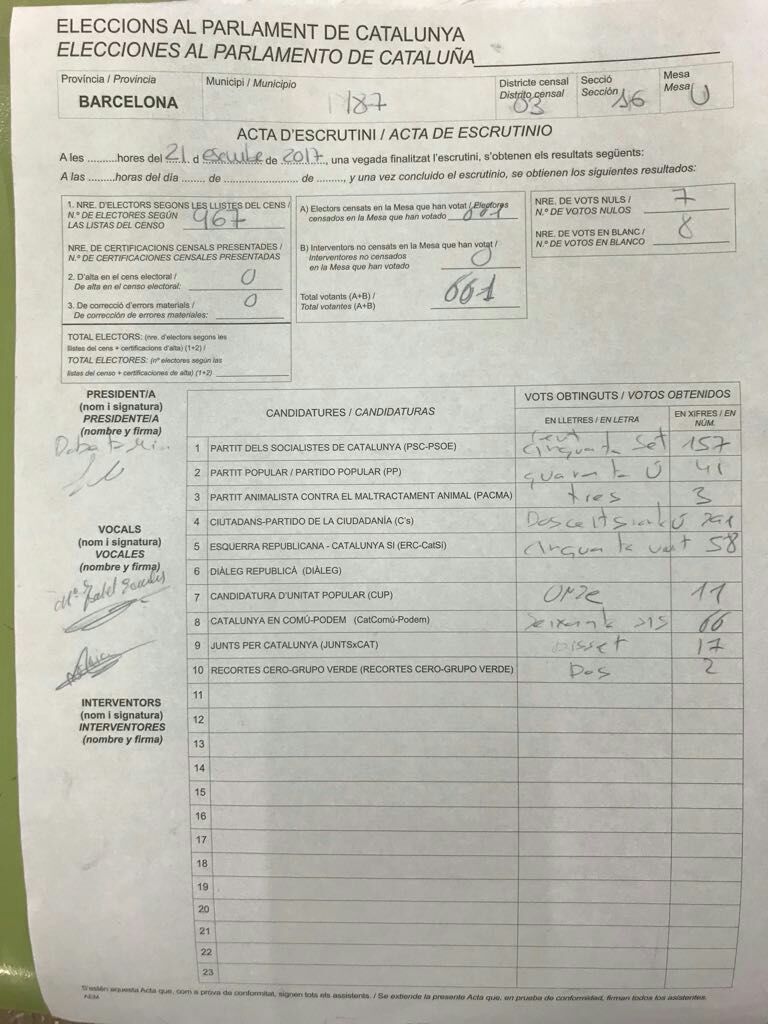 ELECCIONS AL PARLAMENT DE CATALUNYA
ELECCIONES AL PARLAMENTO DE CATALUÑA
Província / Provincia
BARCELONA
Municipi / Municipio
187
Districte censal
Distrito censal
03
Secció
Sección
16
Mesa
Mesa
U
ACTA D'ESCRUTINI / ACTA DE ESCRUTINIO
A les .........hores del 21 d de 2017, una vegada finalitzat l'escrutini, s'obtenen els resultats següents:
A las .........horas del día ....... de .................... de ........, y una vez concluido el escrutinio, se obtienen los siguientes resultados:
1. NRE. D'ELECTORS SEGONS LES LLISTES DEL CENS /
N.º DE ELECTORES SEGÚN
LAS LISTAS DEL CENSO 967
NRE. DE CERTIFICACIONS CENSALS PRESENTADES /
N.º DE CERTIFICACIONES CENSALES PRESENTADAS
2. D'alta en el cens electoral /
De alta en el censo electoral: 0
3. De correcció d'errors materials /
De corrección de errores materiales: 0
TOTAL ELECTORS: (nre. d'electors segons les
llistes del cens + certificacions d'alta) (1+2) /
TOTAL ELECTORES: (nº electores según las
listas del censo + certificaciones de alta) (1+2)
A) Electors censats en la Mesa que han votat / Electores
censados en la Mesa que han votado 661
B) Interventors no censats en la Mesa que han votat /
Interventores no censados
en la Mesa que han votado 0
Total votants (A+B) /
Total votantes (A+B) 661
NRE. DE VOTS NULS /
N.º DE VOTOS NULOS 7
NRE. DE VOTS EN BLANC /
N.º DE VOTOS EN BLANCO 8
PRESIDENT/A
(nom i signatura)
PRESIDENTE/A
(nombre y firma)
VOCALS
(nom i signatura)
VOCALES
(nombre y firma)
Mª Isabel
INTERVENTORS
(nom i signatura)
INTERVENTORES
(nombre y firma)
CANDIDATURES / CANDIDATURAS
VOTS OBTINGUTS / VOTOS OBTENIDOS
EN LLETRES / EN LETRA
EN XIFRES / EN
NÚM.
1 PARTIT DELS SOCIALISTES DE CATALUNYA (PSC-PSOE) cent cinquanta set 157
2 PARTIT POPULAR / PARTIDO POPULAR (PP) quaranta ú 41
3 PARTIT ANIMALISTA CONTRA EL MALTRACTAMENT ANIMAL (PACMA) tres 3
4 CIUTADANS-PARTIDO DE LA CIUDADANÍA (C's) 291
5 ESQUERRA REPUBLICANA - CATALUNYA SI (ERC-CatSí) cinquanta vuit 58
6 DIÀLEG REPUBLICÀ (DIÀLEG)
7 CANDIDATURA D'UNITAT POPULAR (CUP) onze 11
8 CATALUNYA EN COMÚ-PODEM (CatComú-Podem) seixanta sis 66
9 JUNTS PER CATALUNYA (JUNTSxCAT) Disset 17
10 RECORTES CERO-GRUPO VERDE (RECORTES CERO-GRUPO VERDE) Dos 2
11
12
13
14
15
16
17
18
19
20
21
22
23
S'estén aquesta Acta que, com a prova de conformitat, signen tots els assistents. / Se extiende la presente Acta que, en prueba de conformidad, firman todos los asistentes.